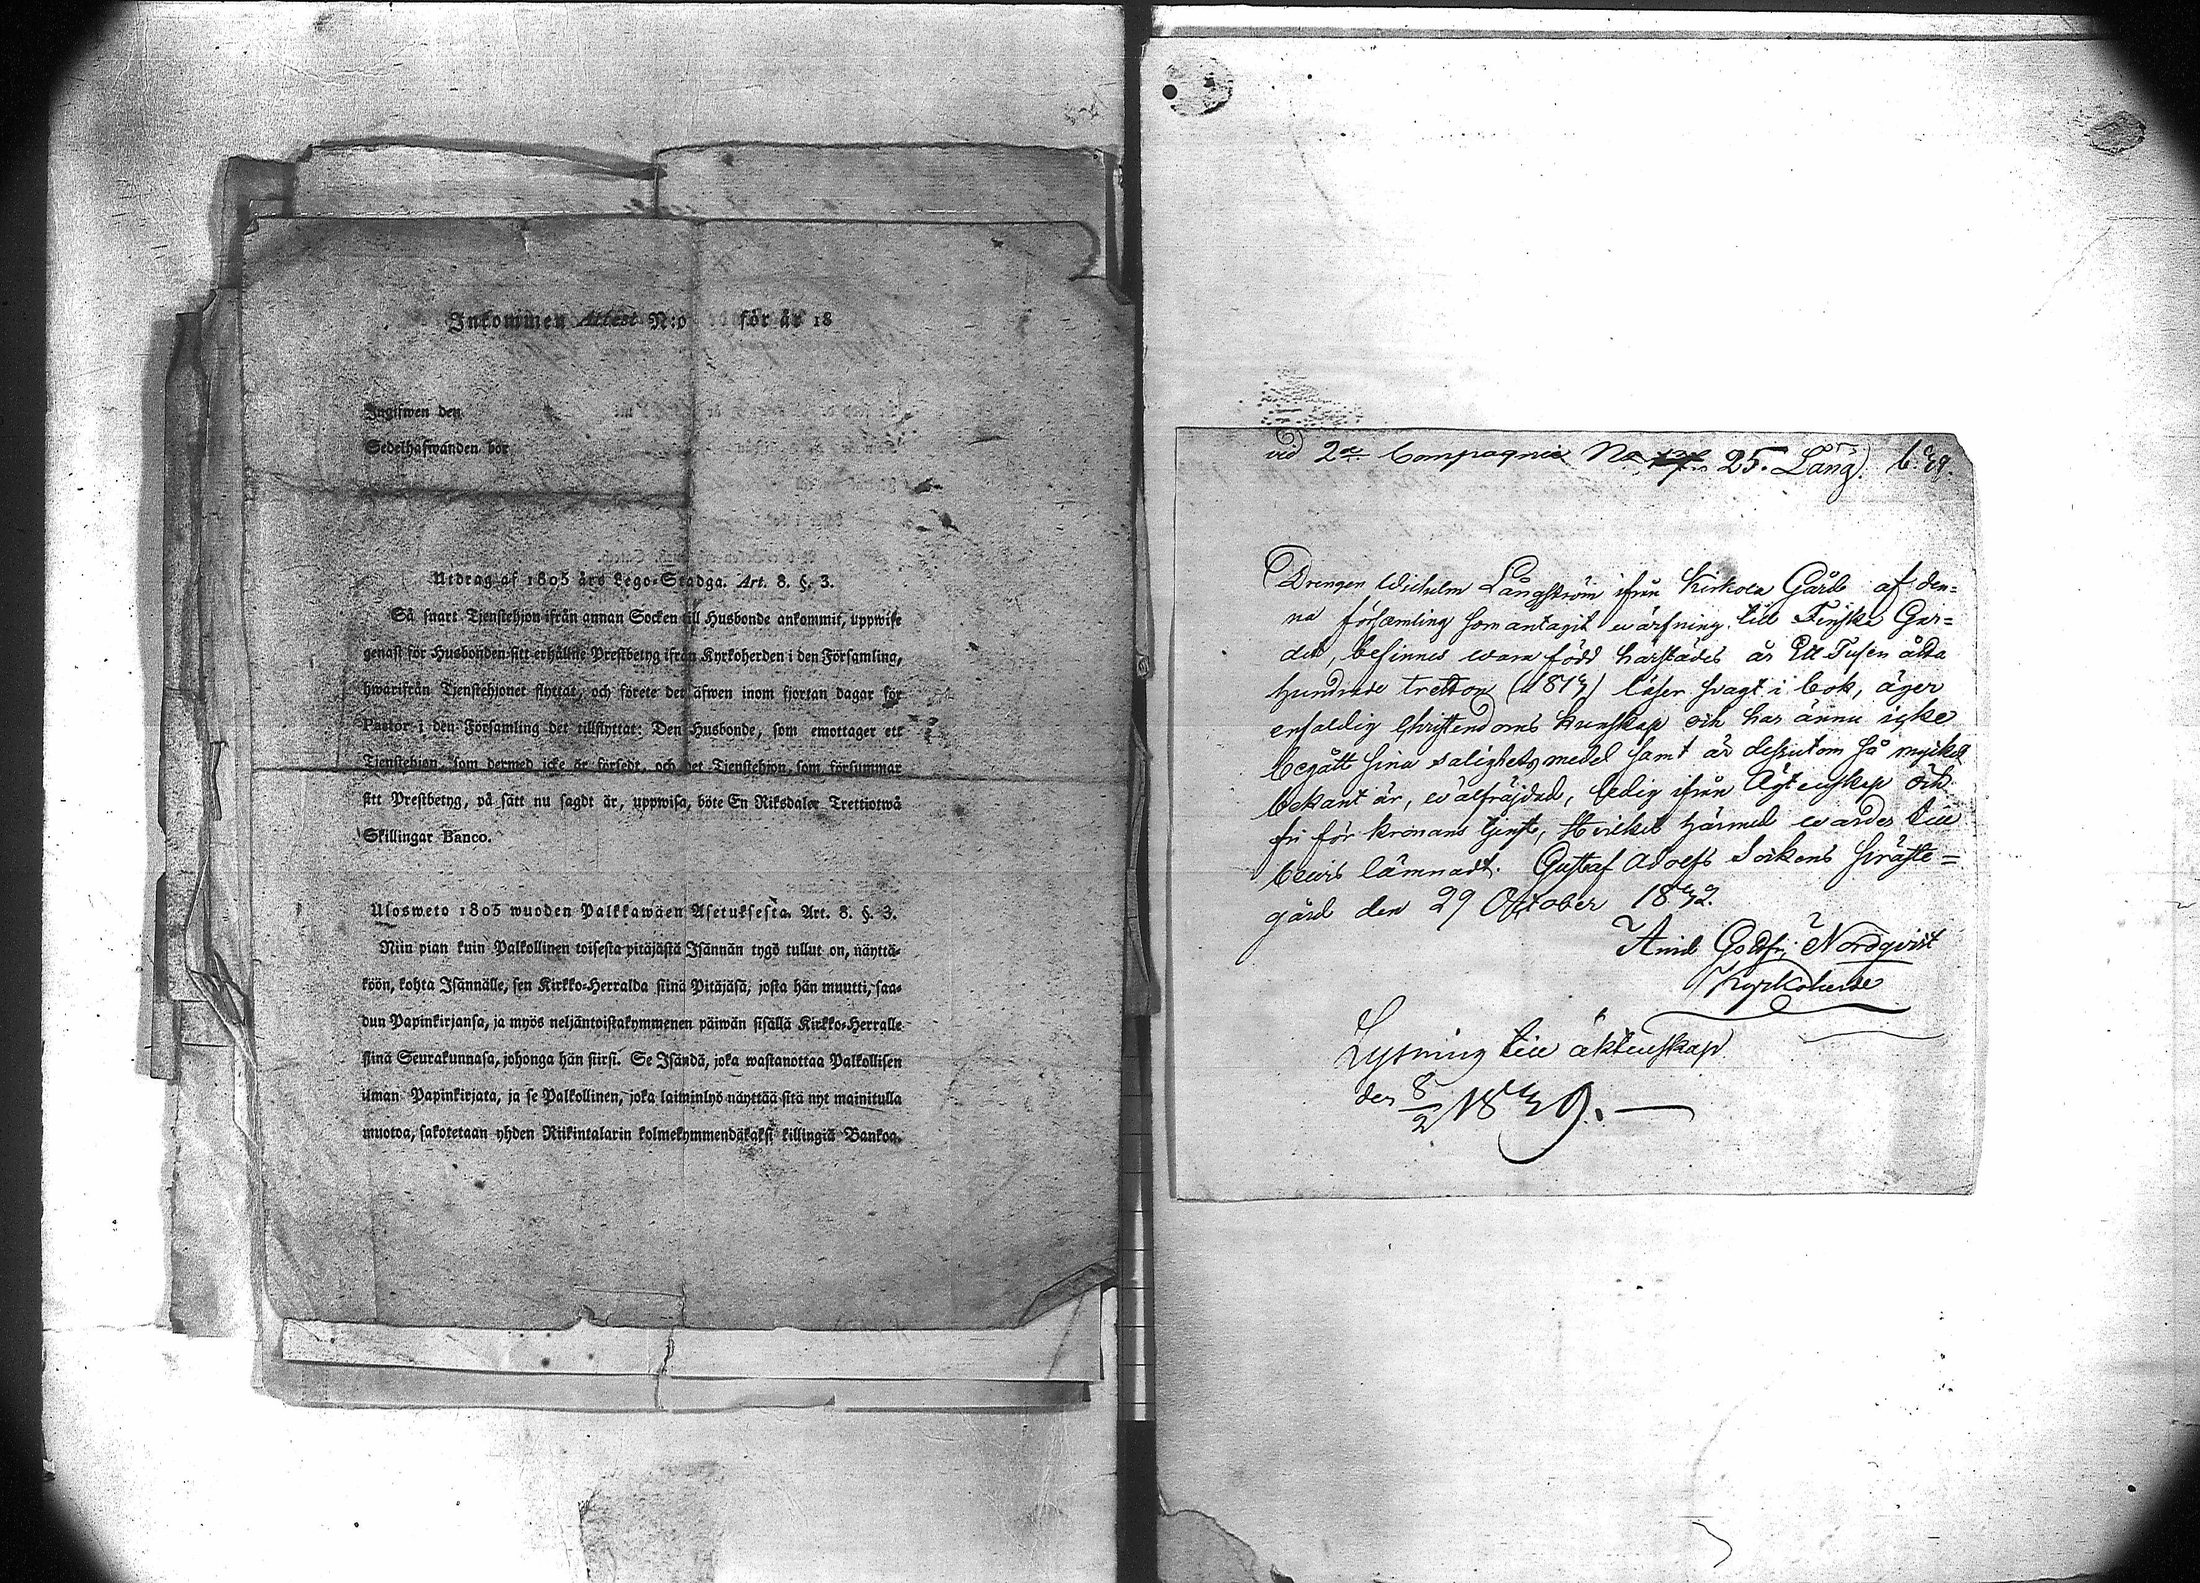 Inkommen Attest N:o för år 18
Ingifwen den
Sedelhafwanden bor
Utdrag af 1805 års Lego-Stadga. Art. 8. §. 3.
Så snart Tjenstehjon ifrån annan Socken till Husbonde ankommit, uppwise
genast för Husbonden sitt erhållne Prestbetyg ifrån Kyrkoherden i den Församling,
hwarifrån Tjenstehjonet flyttat, och förete det äfwen inom fjortan dagar för
Pastor i den Församling det tillflyttat: Den Husbonde, som emottager ett
Tjenstehjon, som dermed icke är försedt, och det Tjenstehjon, som försummar
sitt Prestbetyg, på sätt nu sagdt är, uppwisa, böte En Riksdaler Trettiotwå
Skillingar Banco.
Ulosweto 1805 wuoden Palkkawäen Asetuksesta. Art. 8. §. 3.
Niin pian kuin Palkollinen toisesta pitäjästä Isännän tygö tullut on, näyttä-
köön, kohta Isännälle, sen Kirkko-Herralda siinä Pitäjäsä, josta hän muutti, saa-
dun Papinkirjansa, ja myös neljäntoistakymmenen päiwän sisällä Kirkko-Herralle
siinä Seurakunnasa, johonga hän siirsi. Se Isändä, joka wastanottaa Palkollisen
ilman Papinkirjata, ja se Palkollinen, joka laiminlyö näyttää sitä nyt mainitulla
muotoa, sakotetaan yhden Riikintalarin kolmekymmendäkaksi killingiä Bankoa.
vid 2a Compagnie No 25. Lång.
Drengen Wilhelm Långström ifrån Kirkola Gård af den-
na församling som antagit wärfning till Finska Gar-
det, befinnes wara född härstädes år Ett Tusen åtta
hundrade tretton (1813) läser svagt i bok, äger
enfaldig Christendoms kunskap och har ännu icke
begått sina salighets medel samt är dessutom så mycket
bekant är, wälfräjdad, ledig ifrån Ägtenskap och
fri för kronans tjenst, Hvilket härmed warder till
bewis lämnadt. Gustaf Adolfs Sockens Präste-
gård den 29 October 1832.
Arvid Gottfr. Nordqvist
Kyrkoherde
Lysning till äktenskap
den 8/2 1839.